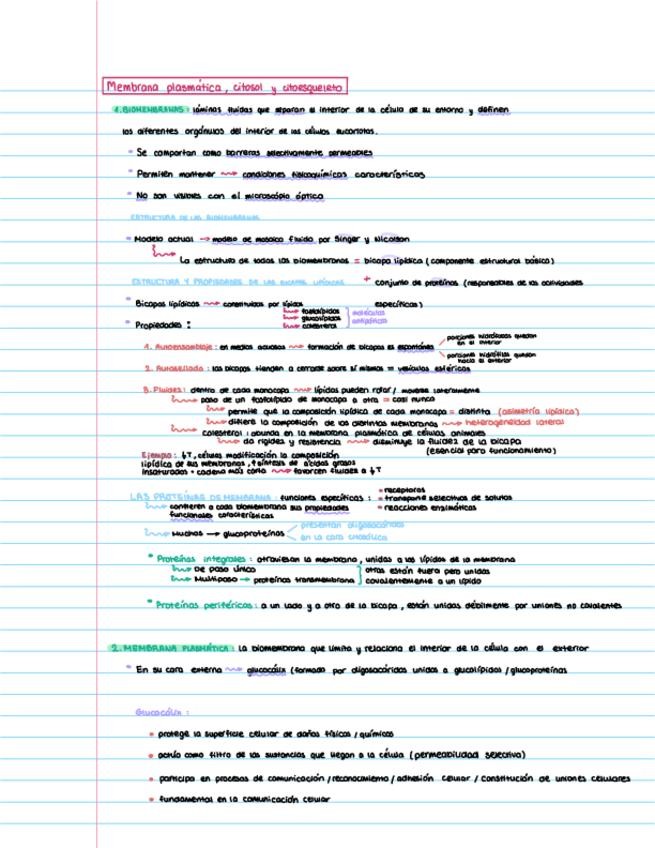 Membrana plasmática, citosol y citoesqueleto
1. BIOMEMBRANAS: láminas fluidas que separan el interior de la célula de su entorno y definen
los diferentes orgánulos del interior de las células eucariotas.
* Se comportan como barreras selectivamente permeables
* Permiten mantener → condiciones fisicoquímicas características
* No son visibles con el microscopio óptico
ESTRUCTURA DE LAS BIOMEMBRANAS
* Modelo actual → modelo de mosaico fluido por Singer y Nicolson
→ La estructura de todas las biomembranas = bicapa lipídica (componente estructural básico)
ESTRUCTURA Y PROPIEDADES DE LAS BICAPAS LIPÍDICAS + conjunto de proteínas (responsables de las actividades
específicas)
* Bicapas lipídicas → constituidas por lípidos
→ fosfolípidos
→ glucolípidos
→ colesterol
moléculas
antipáticas
* Propiedades:
1. Autoensamblaje: en medios acuosos → formación de bicapas es espontánea
porciones hidrófobas quedan
en el interior
porciones hidrófilas quedan
hacia el exterior
2. Autosellado: las bicapas tienden a cerrarse sobre sí mismas = vesículas esféricas
3. Fluidez: dentro de cada monocapa → lípidos pueden rotar / moverse lateralmente
→ paso de un fosfolípido de monocapa a otra = casi nunca
→ permite que la composición lipídica de cada monocapa = distinta (asimetría lipídica)
→ difiere la composición de las distintas membranas → heterogeneidad lateral
→ colesterol: abunda en la membrana plasmática de células animales
→ da rigidez y resistencia → disminuye la fluidez de la bicapa
(esencial para funcionamiento)
Ejemplo: ↓T, células modificación la composición
lipídica de sus membranas, ↑síntesis de ácidos grasos
insaturados + cadena más corta → favorecen fluidez a ↓T
LAS PROTEÍNAS DE MEMBRANA: funciones específicas:
* receptoras
* transporte selectivos de solutos
* reacciones enzimáticas
→ confieren a cada biomembrana sus propiedades
funcionales características
→ Muchas → glucoproteínas
presentan oligosacáridos
en la cara
* Proteínas integrales: atraviesan la membrana, unidas a los lípidos de la membrana
→ De paso único
→ Multipaso → proteínas transmembrana
otras están fuera pero unidas
covalentemente a un lípido
* Proteínas periféricas: a un lado y a otro de la bicapa, están unidas débilmente por uniones no covalentes
2. MEMBRANA PLASMÁTICA: la biomembrana que limita y relaciona el interior de la célula con el exterior
* En su cara externa → glucocálix (formado por oligosacáridos unidos a glucolípidos / glucoproteínas
Glucocálix:
• protege la superficie celular de daños físicos / químicos
• actúa como filtro de las sustancias que llegan a la célula (permeabilidad selectiva)
• participa en procesos de comunicación / reconocimiento / adhesión celular / constitución de uniones celulares
• fundamental en la comunicación celular